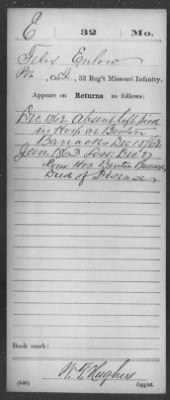 E 32 Mo.
Felix Enlow
Pvt, Co. I, 32 Reg't Missouri Infantry.
Appears on Returns as follows:
Dec 1862 Absent left sick
in Hosp. at Benton
Barracks Dec 15/62
Jan. 1863 Loss: Dec 27
Hos Benton Barracks
Died of Disease
Book mark:
W. T. Hughes
(546) Copyist.